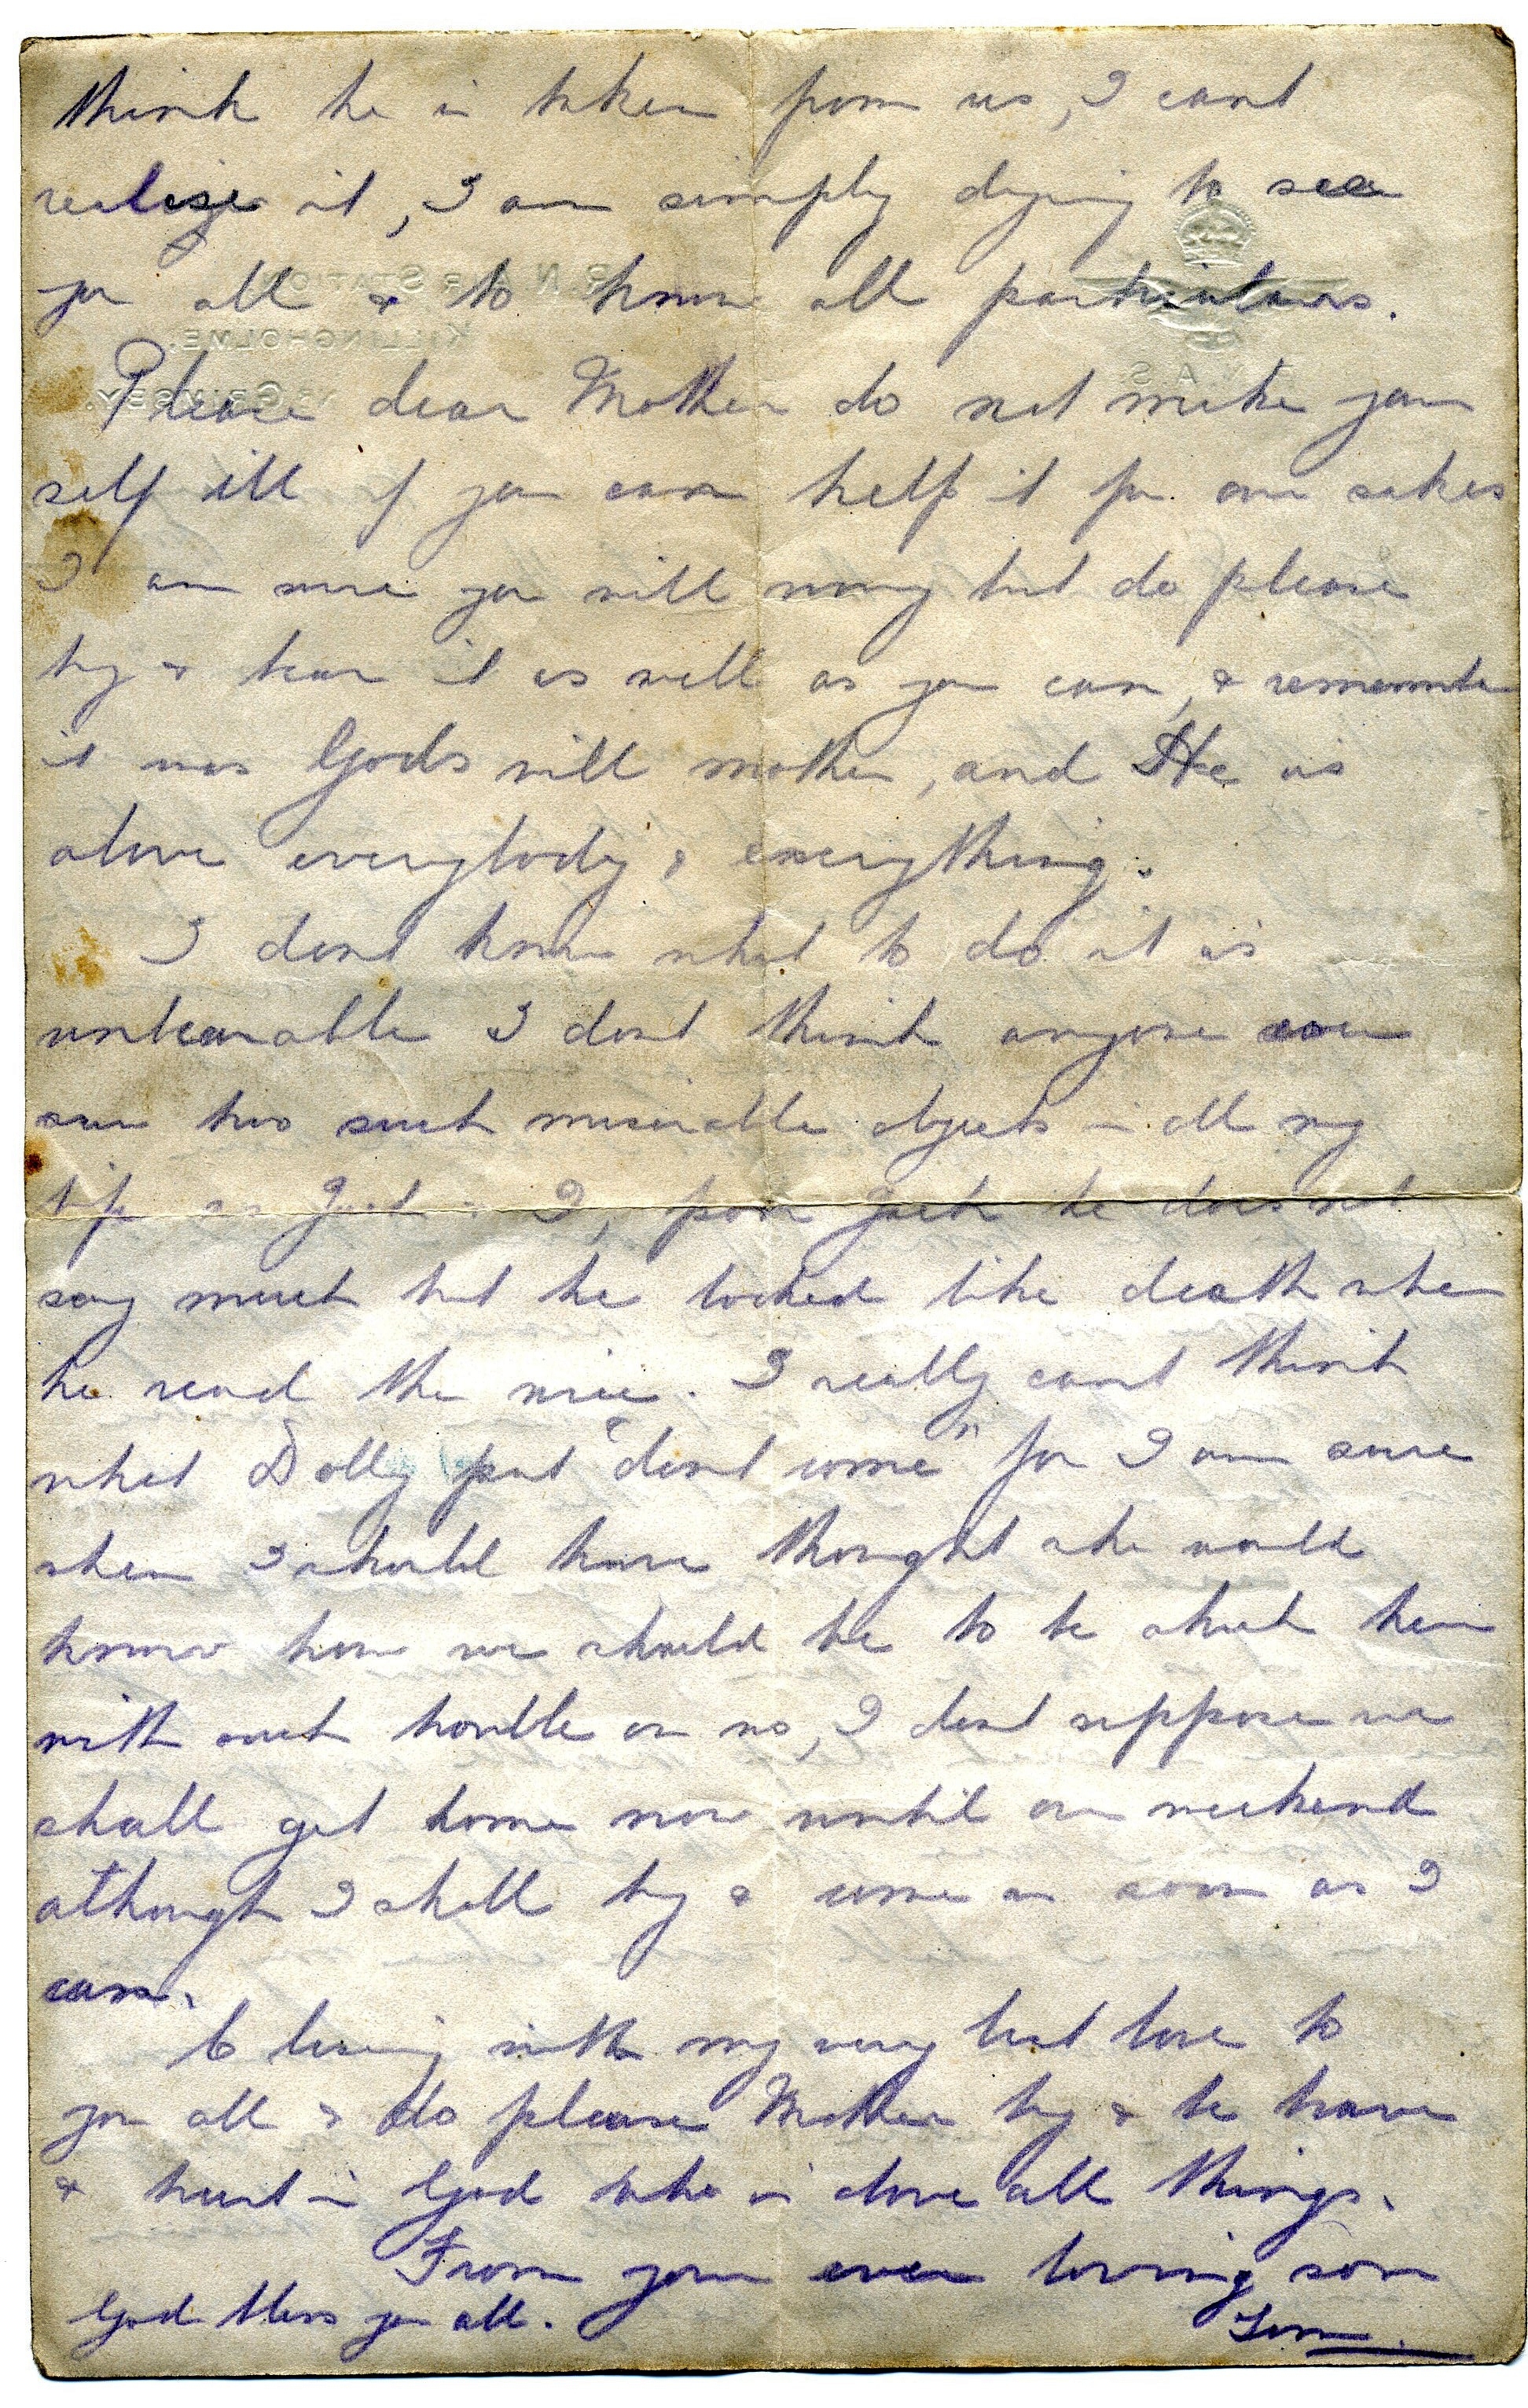 think he is taken from us, I cant
realise it, I am simply dying to see
you all & to know all particulars.
Please dear Mother do not make your
self ill if you can help it for our sakes
I am sure you will worry but do please
try & bear it as well as you can, & remember
it was Gods will mother, and He is
above everybody & everything.
I dont know what to do it is
unbearable I dont think anyone ever
saw two such miserable objects in all my
life as Jack & I, poor Jack he does not
say much but he looked like death when
he read the wire. I really cant think
what Dolly put "dont come" for I am sure
when I should have thought she would
know how we should be to be stuck here
with such trouble on us, I dont suppose we
shall get home now until our weekend
although I shall try & come as soon as I
can.
Closing with my very best love to
you all & do please Mother try & be brave
& trust in God who is above all things.
From your ever loving son
God bless you all.
R.N. AIR STATION
KILLINGHOLME.
GRIMSBY.